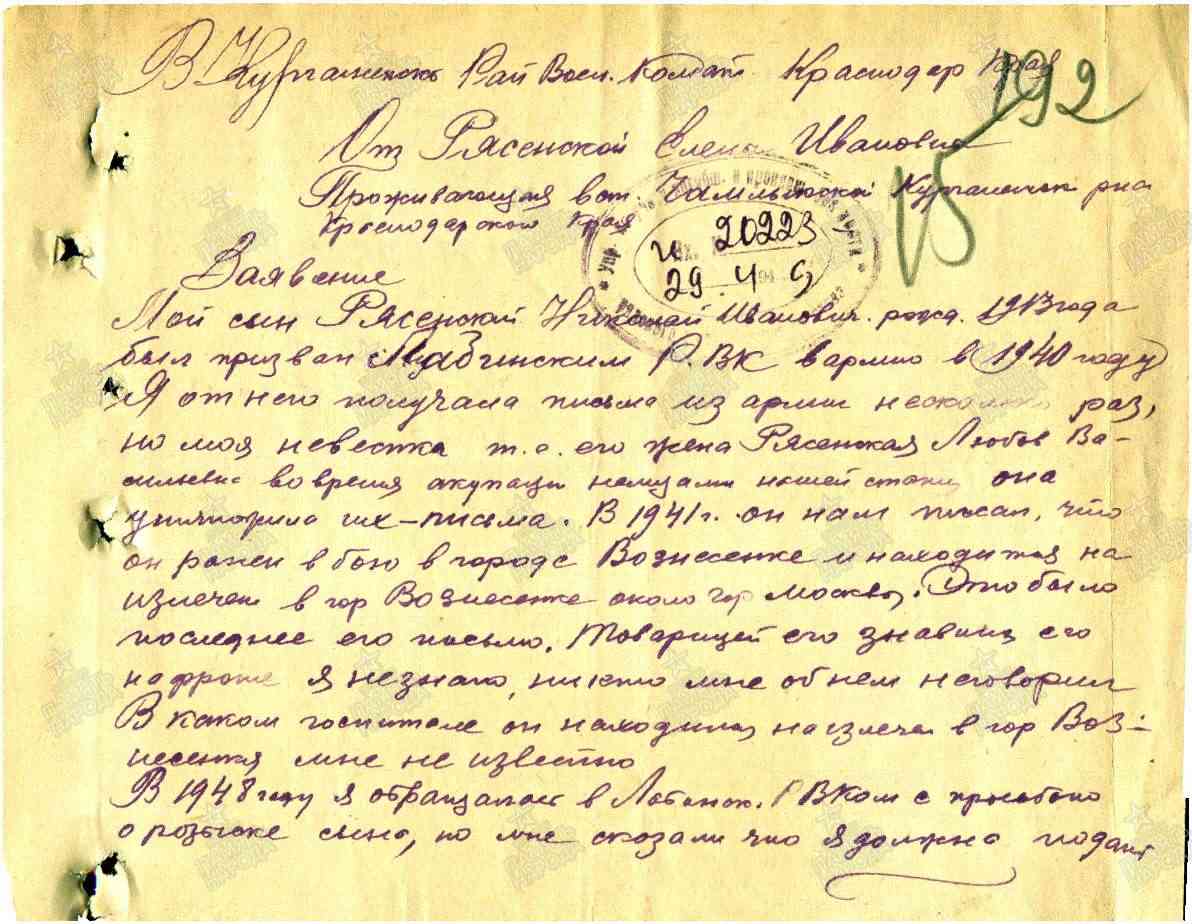 В Курганенск Рай Воен. Комат. Краснодар Края
192
От Рясенской Елена Ивановна
Проживающия в ст. Чамлыкской Курганенск рна
Краснодарского Края
15
и 20223
29 4 9
Заявение
Мой сын Рясенской Николай Иванович. рожд. 1913 года
был призван РВК в армию в 1940 году
Я от него получала письма из армии несколько раз,
но моя невестка т.е. его жена Рясенская Любов Ва-
сильевна во время акупаци немцами нашей стани она
уничтожила их-письма. В 1941 г. он нам писал, что
он ранен в бою в городе Вознесенке и находится на
излечен в гор Вознесенке около гор Москвы. Это было
последнее его письмо. Товарищей его знавших его
на фронте я незнаю, никто мне об нем неговорил
В каком госпитале он находился на излечен в гор Воз-
несенкя мне не известно
В 1948 году я обращалась в Лабинск. РВКом с прозьбою
о розыске сына, но мне сказали что я должна подать